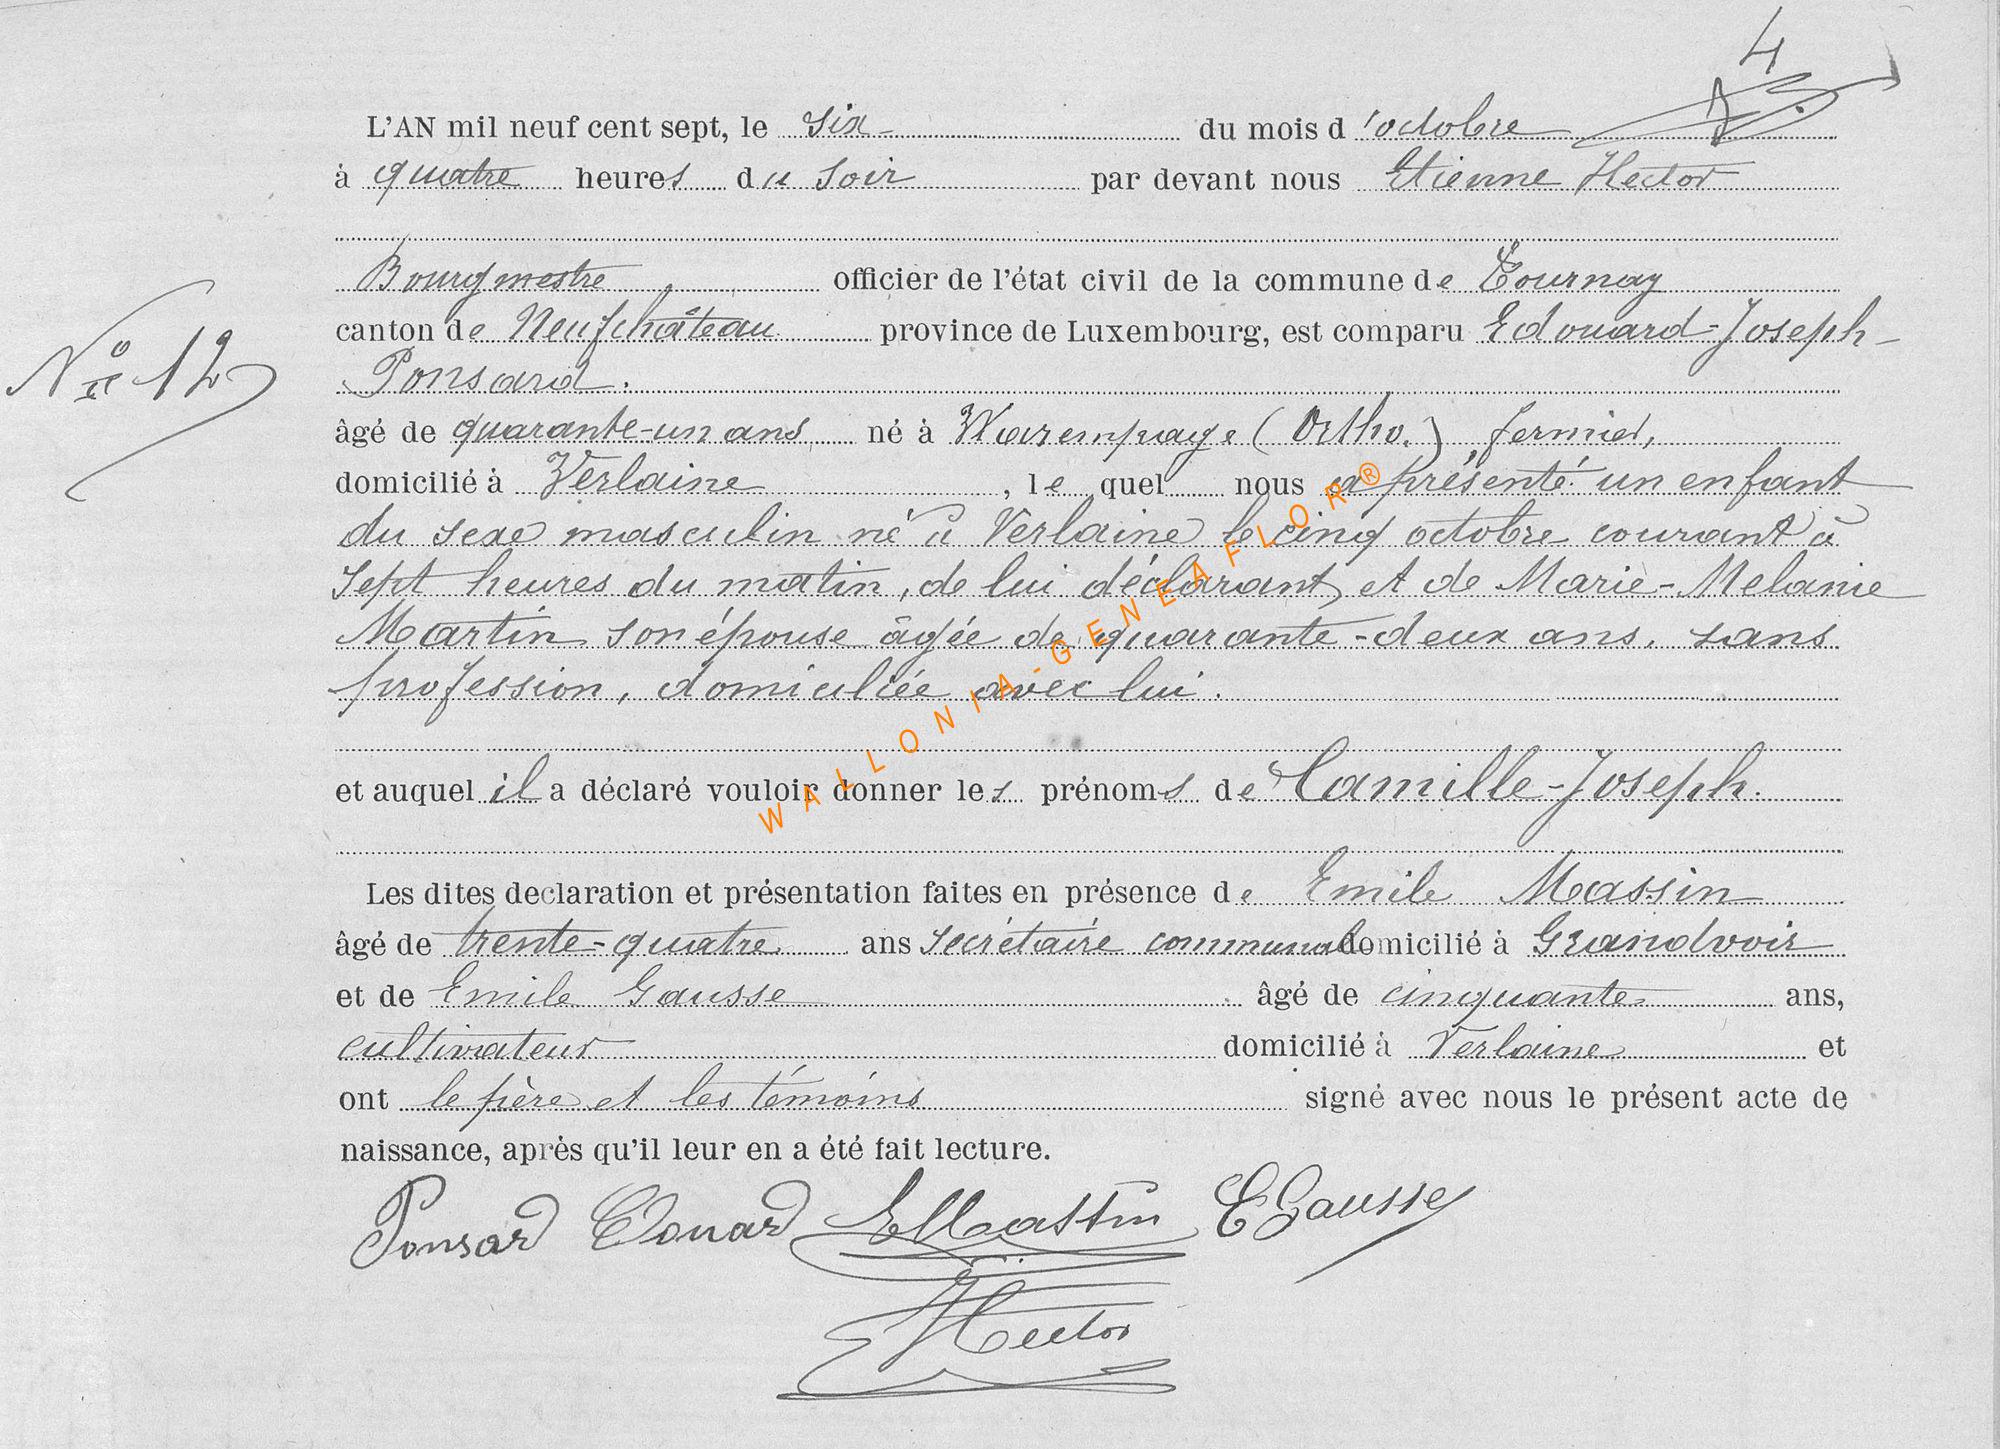 4
L'AN mil neuf cent sept, le six du mois d'octobre
à quatre heures du soir par devant nous Etienne Hector
Bourgmestre officier de l'état civil de la commune de Tournay
canton de Neufchâteau province de Luxembourg, est comparu Edouard-Joseph-
Ponsard.
N° 12
âgé de quarante-un ans né à Warempage (Ortho.), fermier,
domicilié à Verlaine, le quel nous a présenté un enfant
du sexe masculin né à Verlaine le cinq octobre courant à
sept heures du matin, de lui déclarant et de Marie-Melanie
Martin son épouse âgée de quarante-deux ans, sans
profession, domiciliée avec lui.
et auquel il a déclaré vouloir donner les prénoms de Camille-Joseph.
Les dites declaration et présentation faites en présence de Emile Massin
âgé de trente-quatre ans secrétaire communal domicilié à Grandvoir
et de Emile Gausse âgé de cinquante ans,
cultivateur domicilié à Verlaine et
ont le père et les témoins signé avec nous le présent acte de
naissance, après qu'il leur en a été fait lecture.
Ponsard Edouard EMassin EGausse
Hector
WALLONIA-GENEAFLOR®